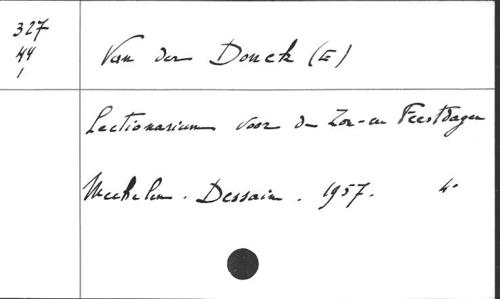 327
44
1
Van der Donck (E)
Lectionarium voor de Zon-en Feestdagen
Mechelen. Dessain. 1957. 4°